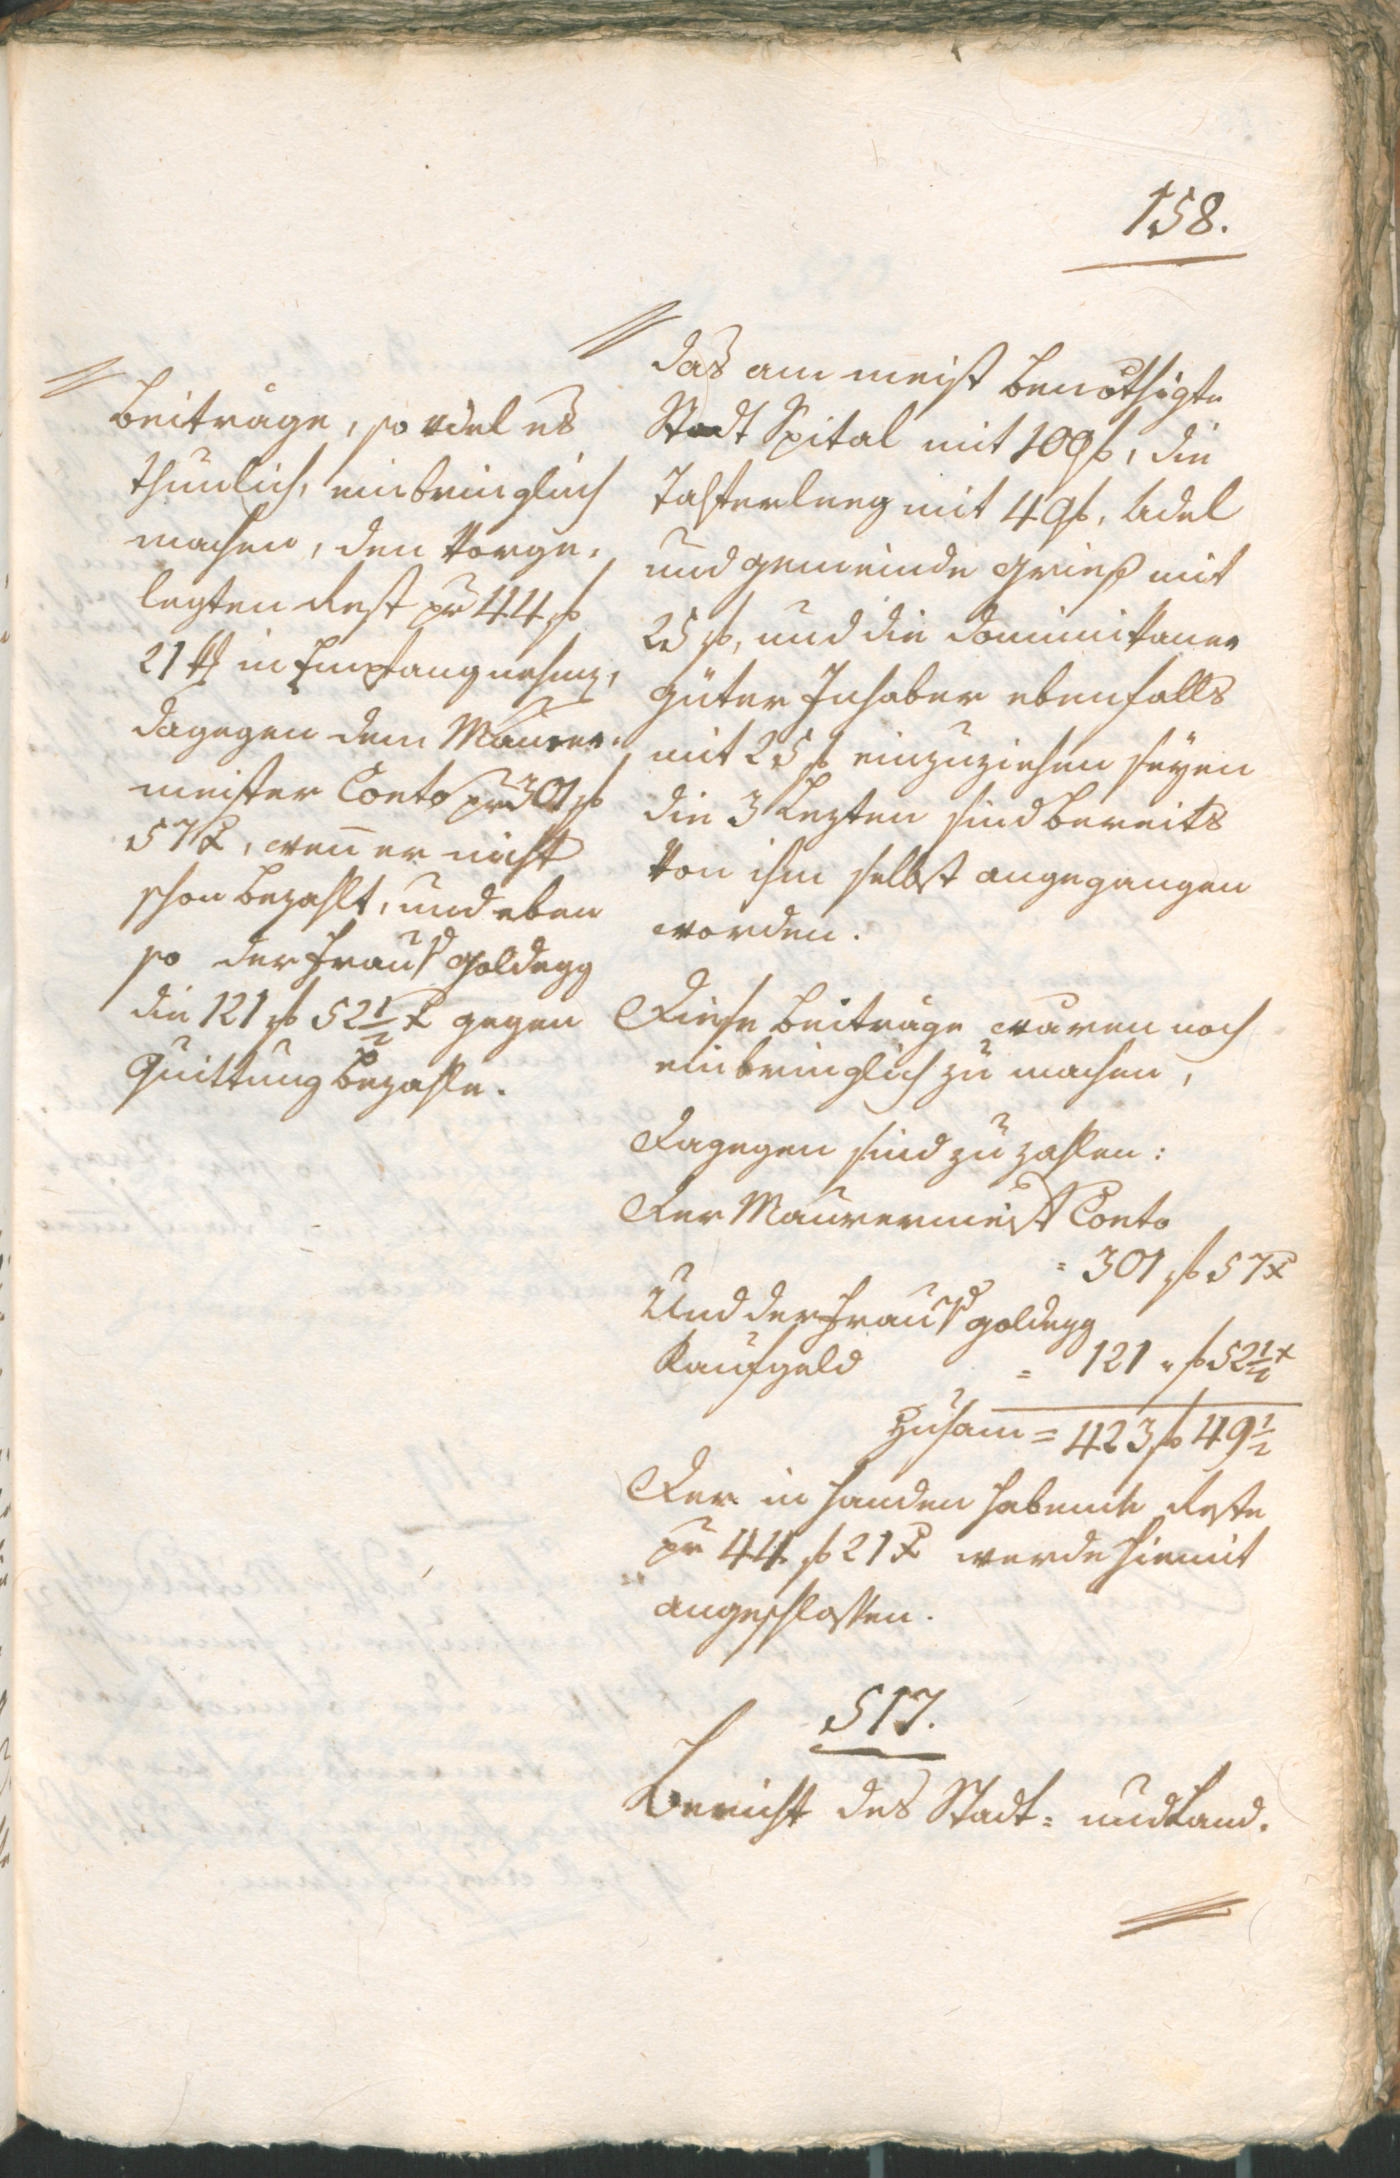 158.
Beiträge, so viel es
thunlich, einbringlich
machen, den Vorge-
legten Rest pr 44 f
21 x in Empfang nehmen,
dagegen dem Maurer-
meister Conto pr 301 f
57 x, wen̄ er nicht
schon bezahlt, und eben
so der Frau v Goldegg
die 121 f 52 1/2 x gegen
Quittung bezahle.
das am meist benöthigte
Stadt Spital mit 100 f, die
mit 40 f, Adel
und Gemeinde Gries mit
25 f, und die Dominikaner
Güter Inhaber ebenfalls
mit 25 f einzuziehen seyen
die 3 Lezten sind bereits
Von ihm selbst angegangen
worden.
Diese Beiträge wären noch
einbringlich zu machen,
Dagegen sind zu zahlen:
Der Maurermeist Conto
= 301 f 57 x
Und der Frau v Goldegg
Kaufgeld = 121 " f 52 1/2 x
Zusam̄ = 423 f 49 1/2
Der in Handen habende Reste
pr 44 f 21 x werde hiemit
angeschlossen.
517.
Bericht des Stadt= und Land-